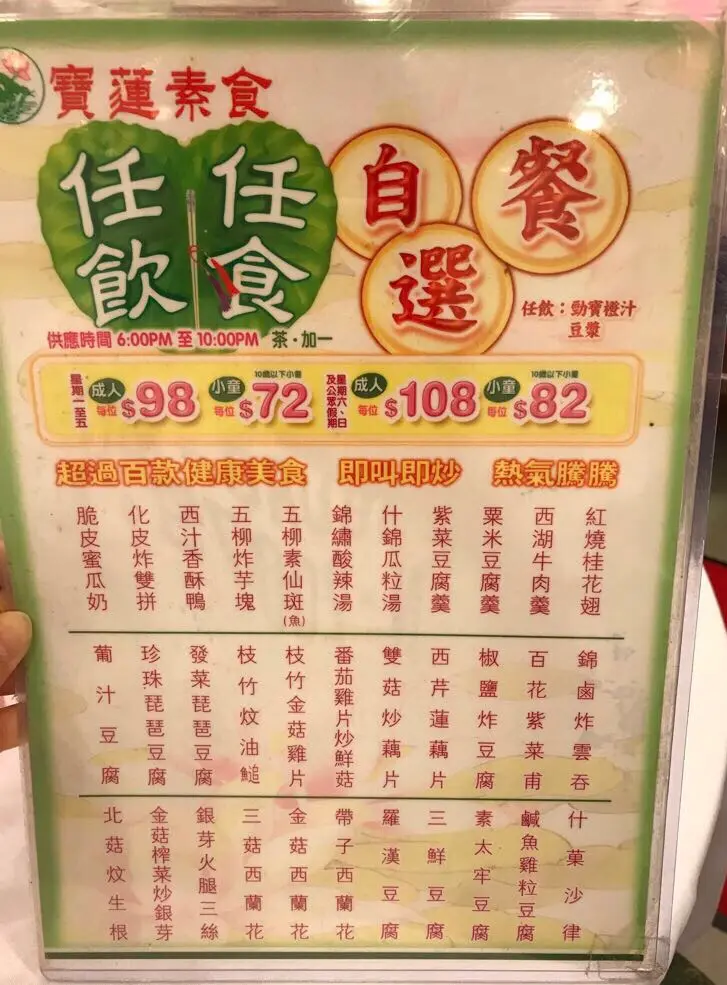 寶蓮素食
任飲
任食
自選餐
任飲：勁寶橙汁
豆漿
供應時間 6:00PM 至 10:00PM 茶·加一
星期一至五
成人
每位 $98
10歲以下小童
小童
每位 $72
星期六、日
及公眾假期
成人
每位 $108
10歲以下小童
小童
每位 $82
超過百款健康美食 即叫即炒 熱氣騰騰
紅燒桂花翅
西湖牛肉羹
粟米豆腐羹
紫菜豆腐羹
什錦瓜粒湯
錦繡酸辣湯
五柳素仙斑(魚)
五柳炸芋塊
西汁香酥鴨
化皮炸雙拼
脆皮蜜瓜奶
錦鹵炸雲吞
百花紫菜甫
椒鹽炸豆腐
西芹蓮藕片
雙菇炒藕片
番茄雞片炒鮮菇
枝竹金菇雞片
枝竹炆油鎚
發菜琵琶豆腐
珍珠琵琶豆腐
葡汁豆腐
什菓沙律
鹹魚雞粒豆腐
素太牢豆腐
三鮮豆腐
羅漢豆腐
帶子西蘭花
金菇西蘭花
三菇西蘭花
銀芽火腿三絲
金菇榨菜炒銀芽
北菇炆生根